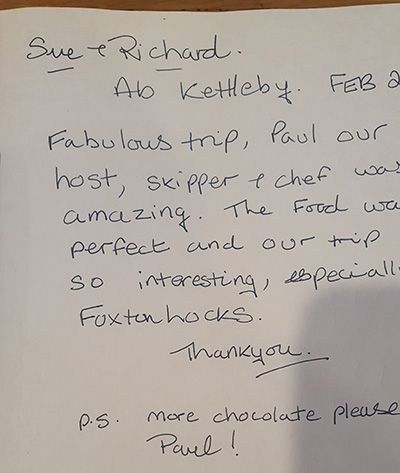 Sue & Richard.
Ab Kettleby. FEB 2
Fabulous trip, Paul our
host, skipper & chef was
amazing. The Food wa
perfect and our trip
so interesting, especiall
Foxtonhocks.
Thankyou.
p.s. more chocolate please
Paul!